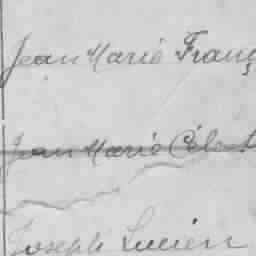 Jean Marie Franç
Jean Marie Célest
Joseph Lucien